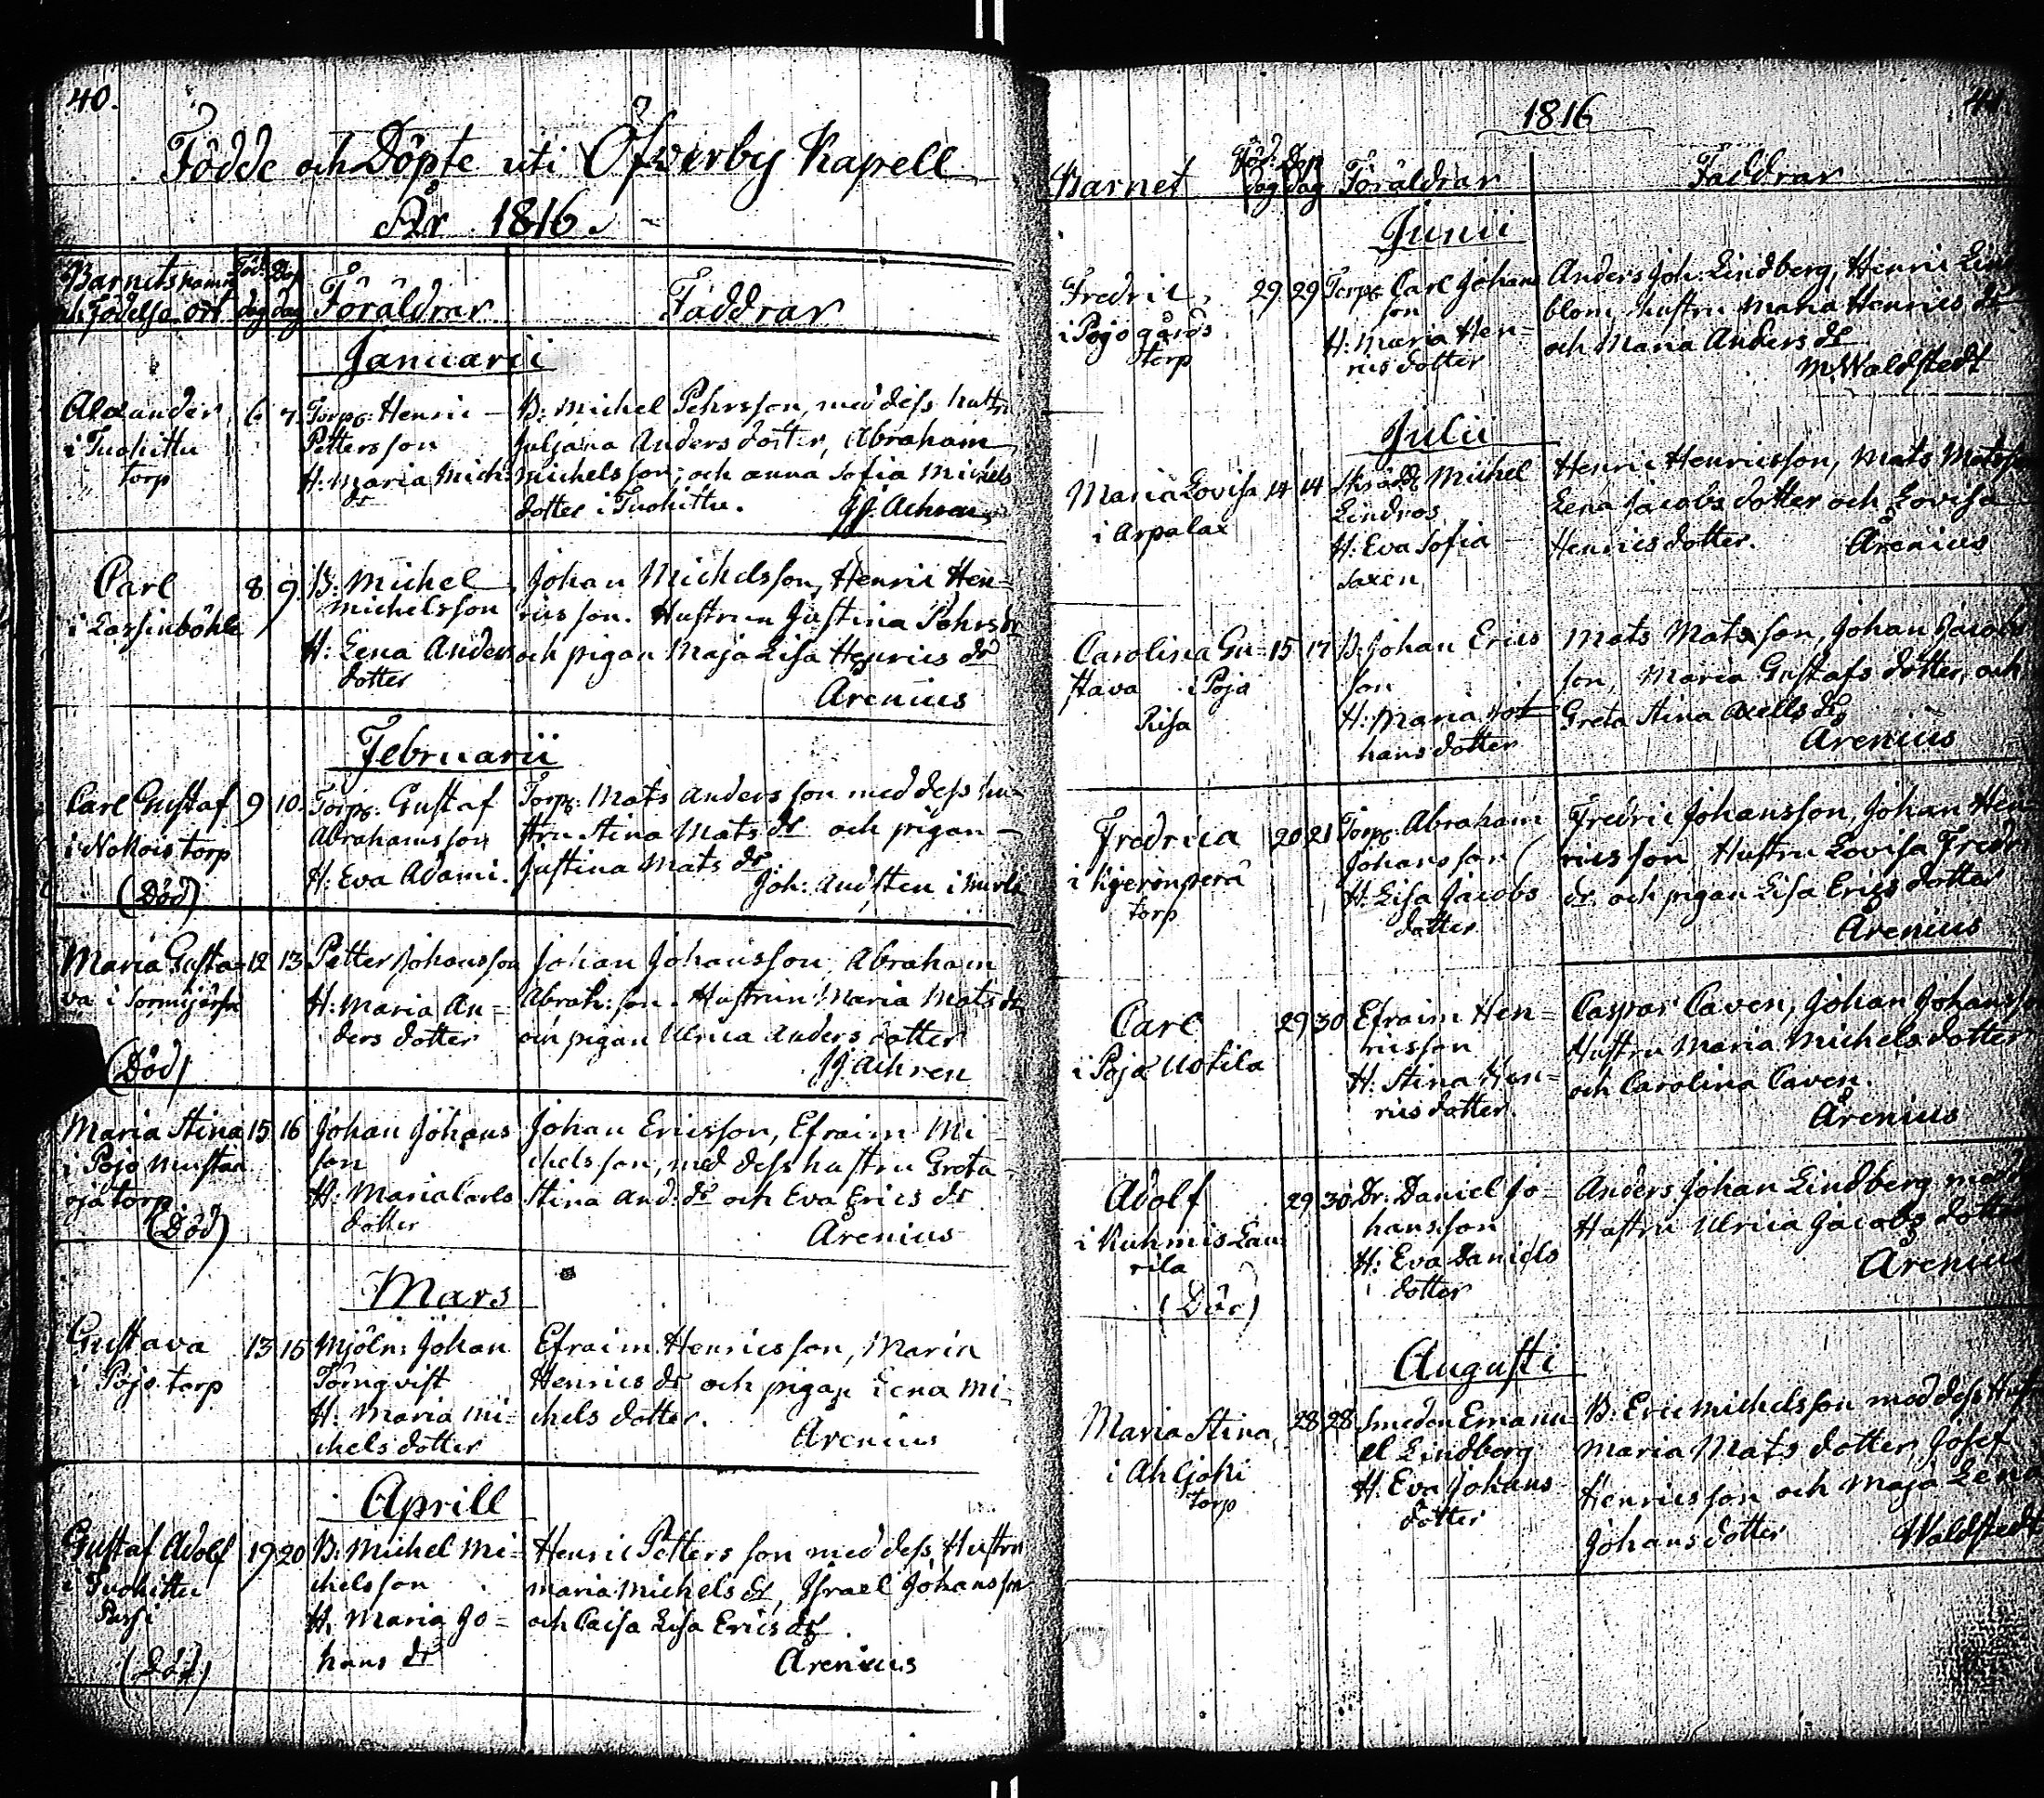 40.
Födde och Döpte uti Öfverby Kapell
År 1816.
Barnets namn Föd: Dop
och födelse ort dag dag Föräldrar Faddrar
Januarii
Alexander, 6 7. Torp: Henric B: Michel Pehrsson, med dess hustru
i Tuohittu Pettersson Juljana Anders dotter, Abraham
torp H: Maria Mich: Michelsson; och Anna Sofia Michels
dr dotter i Tuohittu. Achren
Carl 8. 9. B: Michel Johan Michelsson, Henric Hen=
i Lassinböhle Michelsson ricsson. Hustrun Justina Pehrs dr
H: Lena Anders och pigan Maja Lisa Henrics dr
dotter Arenius
Februarii
Carl Gustaf 9 10. Torp: Gustaf Torp: Mats Andersson med dess hu=
i Nokois torp Abrahamsson stru Stina Mats dr och pigan
(Död) H: Eva Adami. Justina Mats dr
Joh: Audsten i
Maria Gusta= 12 13 Petter Johansson Johan Johansson, Abraham
va i Sormijärfvi H: Maria An= Abrah:son. Hustrun Maria Mats dr
ders dotter och pigan Ulrica Anders dotter
(Död) Achren
Maria Stina 15 16 Johan Johans Johan Ericsson, Efraim Mi
i Pojo Mustan son chelsson, med dess hustru Greta
oja torp H: Maria Carls Stina And: dr och Eva Erics dr
(Död) dotter Årenius
Mars
Gustava 13 15 Mjöln: Johan Efraim Henricsson, Maria
i Pojo torp Törnqvist Henrics dr och pigan Lena Mi=
H: Maria Mi= chels dotter.
chels dotter Årenius
Aprill
Gustaf Adolf 19 20 B: Michel Mi= Henric Petters son med dess Hustru
i Tuohittu chelsson Maria Michels dr, Israel Johansson
Pursi H: Maria Jo= och Caisa Lisa Erics dr
(Död) hans dr Årenius
1816 41.
Barnet Föd: Dop
dag dag Föräldrar Faddrar
Junii
Fredric, 29 29 Torp: Carl Johans Anders Joh: Lindberg, Henric Lind
i Pojo gårds son blom, hustru Maria Henrics dr
torp H: Maria Hen= och Maria Anders dr
rics dotter M. Waldstedt
Julii
Maria Lovisa 14 14 Skrädd: Michel Henric Henricsson, Mats Matsson
i Arpalax Lindros Lena Jacobs dotter och Lovisa
H: Eva Sofia Henrics dotter. Årenius
Saxen
Carolina Gu= 15 17 B: Johan Erics Mats Matsson, Johan Jacobs
stava i Pojo son son, Maria Gustafs dotter, och
Risa H: Maria Jo= Greta Stina Axells dr
hans dotter Årenius
Fredrica 20 21 Torp: Abraham Fredric Johansson, Johan Hen
i Kjeronperä Johansson ricsson Hustru Lovisa Fredr
torp H: Lisa Jacobs dr. och pigan Lisa Erics dotter
dotter Årenius
Carl 29 30 Efraim Hen= Caspar Caven, Johan Johansson
i Pojo Uotila ricsson Hustru Maria Michels dotter
H: Stina Hen= och Carolina Caven.
rics dotter. Årenius
Adolf 29 30 Dr: Daniel Jo= Anders Johan Lindberg med
i Kuhmis Lau= hansson Hustru Ulrica Jacobs dotter
rila H: Eva Daniels Årenius
(Död) dotter
Augusti
Maria Stina, 28 28 Smeden Emanu= B: Eric Michelsson med dess Hust
i Ahljoki el Lindberg Maria Mats dotter, Josef
torp H: Eva Johans Henricsson och Maja Lena
dotter Johans dotter Waldstedt